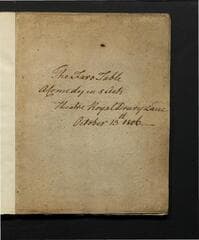 The Faro Table
A Comedy in 5 Acts
Theatre Royal Drury Lane
October 15th 1806